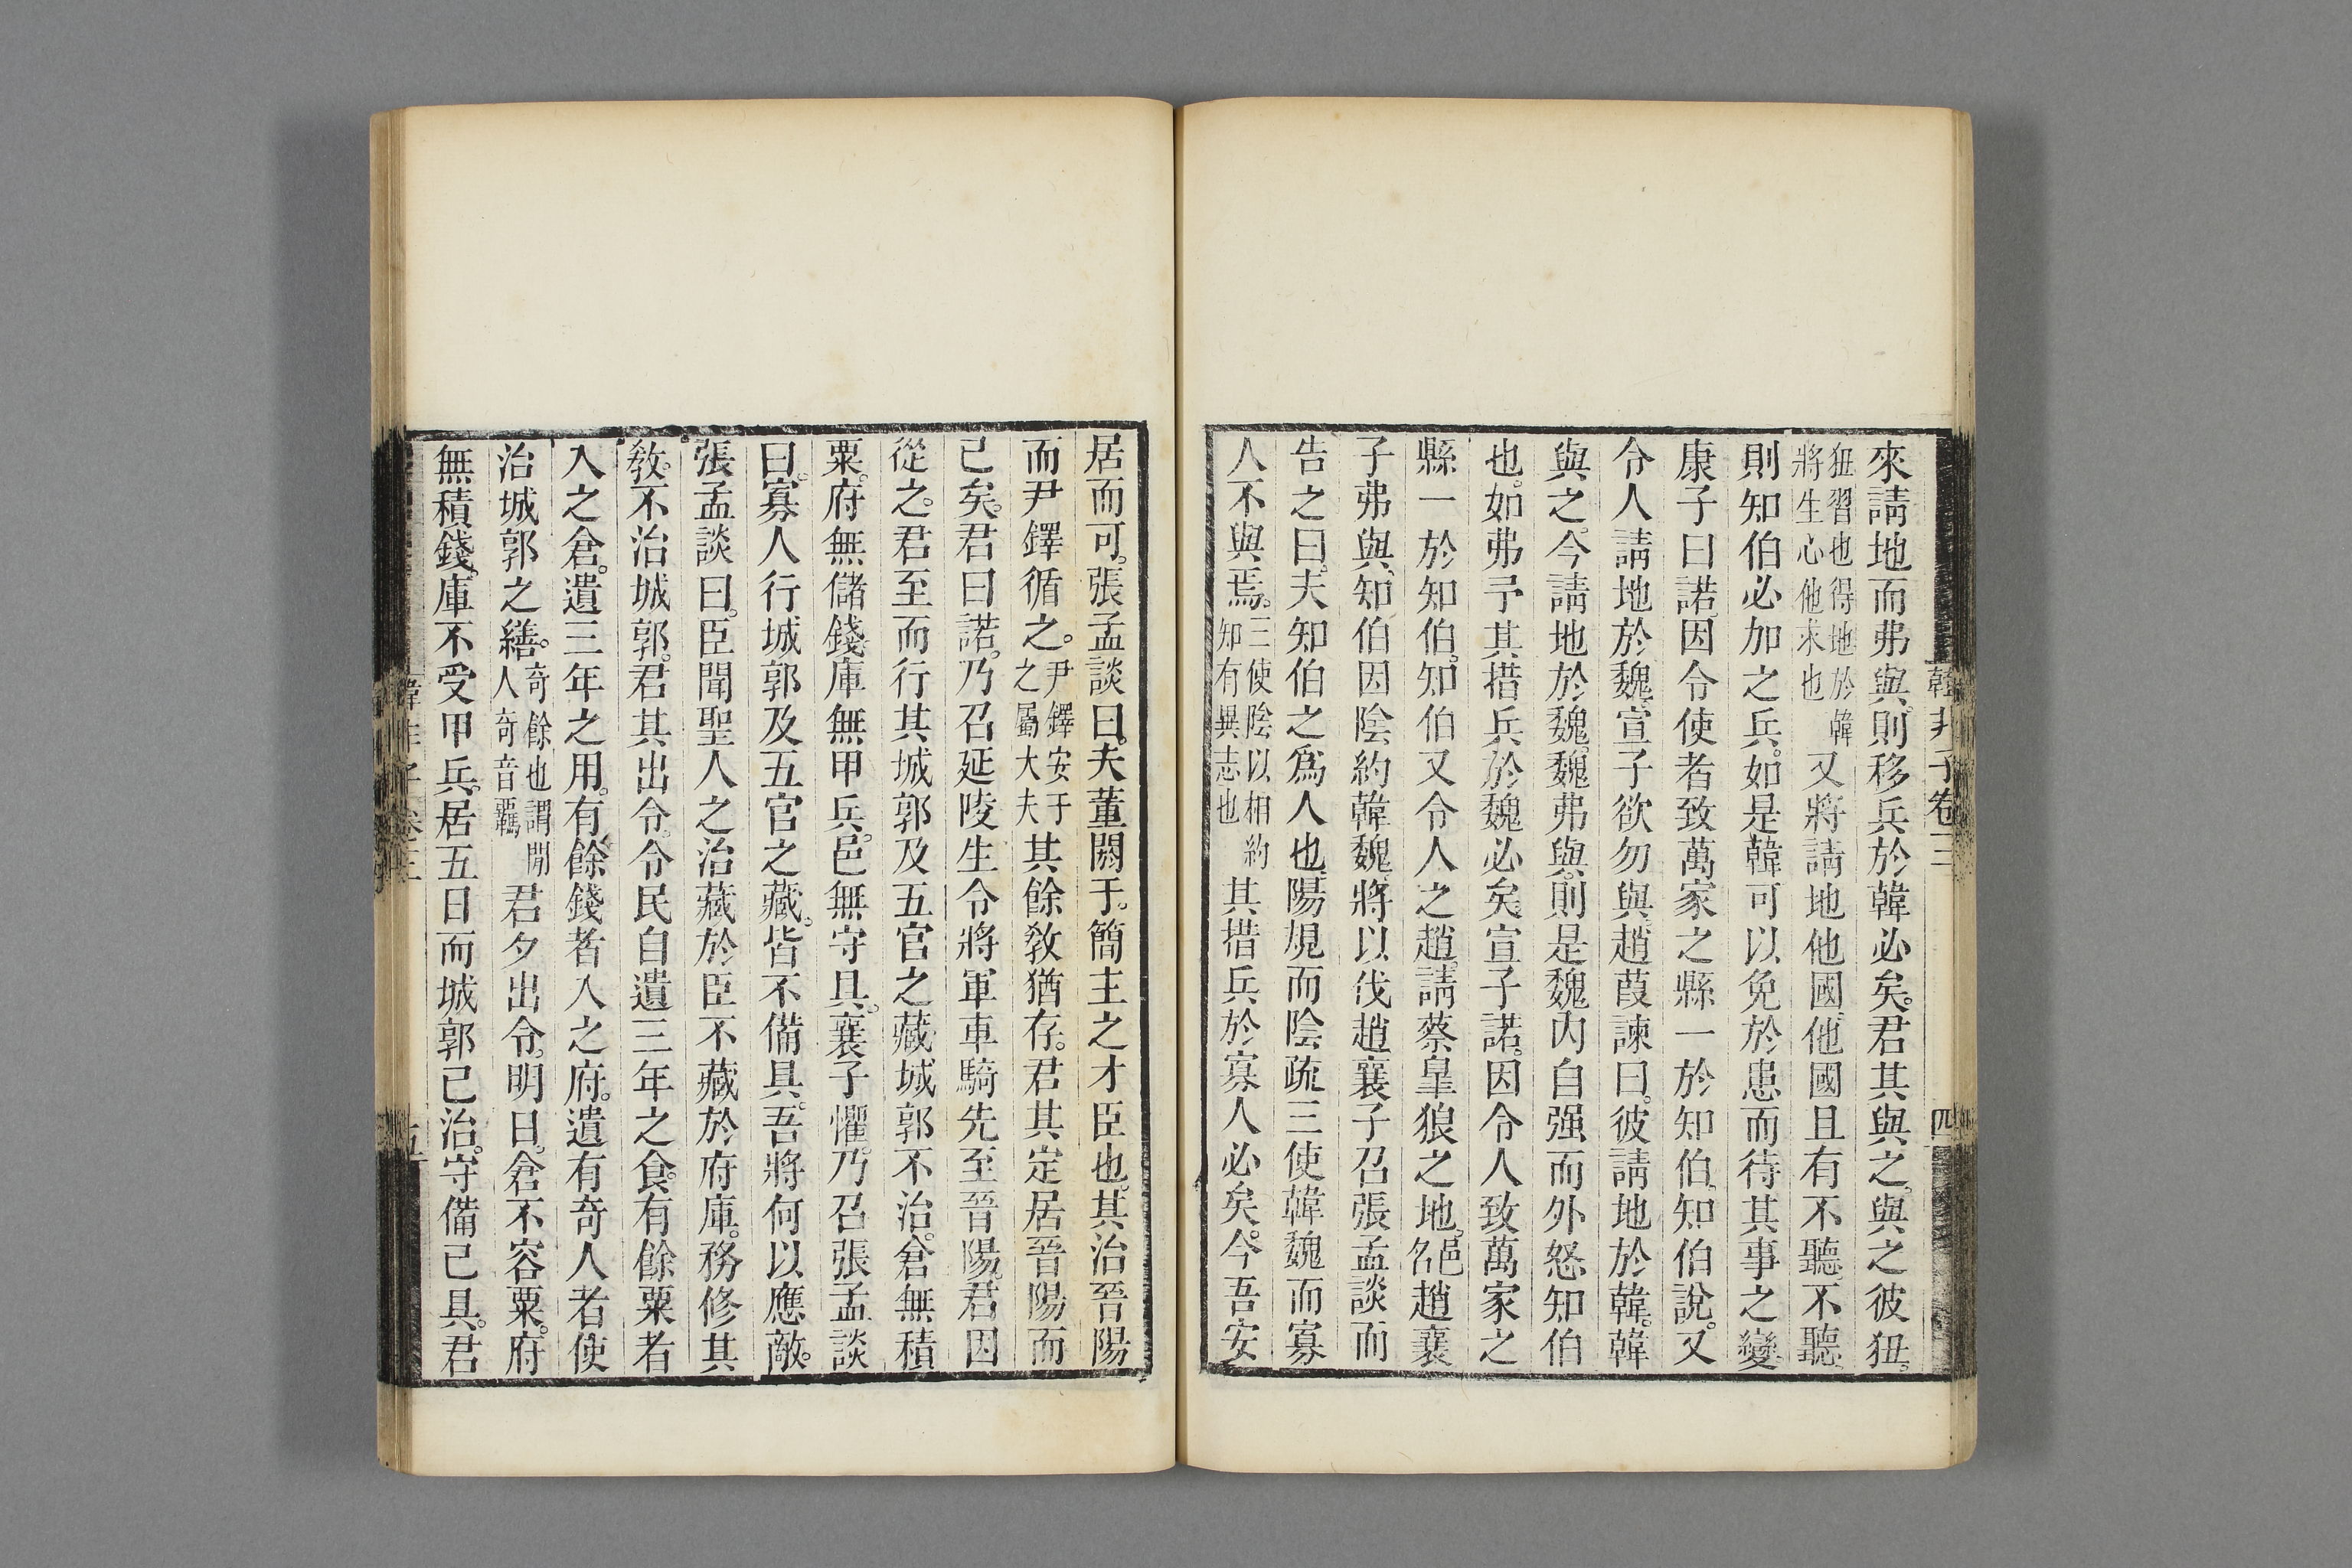 韓非子卷三
四
來請地而弗與則移兵於韓必矣。君其與之。與之彼狃。
狃習也得地於韓
將生心他求也
又將請地他國他國且有不聽不聽
則知伯必加之兵。如是韓可以免於患而待其事之變
康子曰諾因令使者致萬家之縣一於知伯。知伯說。又
令人請地於魏宣子欲勿與趙葭諫曰。彼請地於韓。韓
與之。今請地於魏。魏弗與。則是魏內自强而外怒知伯
也。如弗予其措兵於魏必矣。宣子諾。因令人致萬家之
縣一於知伯。知伯又令人之趙。請蔡皐狼之地。
邑
名
趙襄
子弗與。知伯因陰約韓魏。將以伐趙。襄子召張孟談而
告之曰。夫知伯之爲人也。陽規而陰疏。三使韓魏而寡
人不與焉。
三使陰以相約
知有異志也
其措兵於寡人必矣。今吾安
居而可。張孟談曰。夫董閼于。簡主之才臣也。其治晉陽
而尹鐸循之。
尹鐸安于
之屬大夫
其餘教猶存。君其定居晉陽而
已矣。君曰諾。乃召延陵生令將軍車騎先至晉陽。君因
從之。君至而行其城郭及五官之藏城郭不治。倉無積
粟。府無儲錢庫無甲兵。邑無守具。襄子懼。乃召張孟談
曰。寡人行城郭及五官之藏。皆不備具。吾將何以應敵。
張孟談曰。臣聞聖人之治藏於臣不藏於府庫。務修其
教。不治城郭。君其出令。令民自遺三年之食。有餘粟者
入之倉。遺三年之用。有餘錢者入之府。遺有奇人者使
治城郭之繕。
奇餘也謂閒
人奇音羈
君夕出令。明日。倉不容粟。府
無積錢。庫不受甲兵。居五日而城郭已治。守備已具。君
韓非子卷三
五